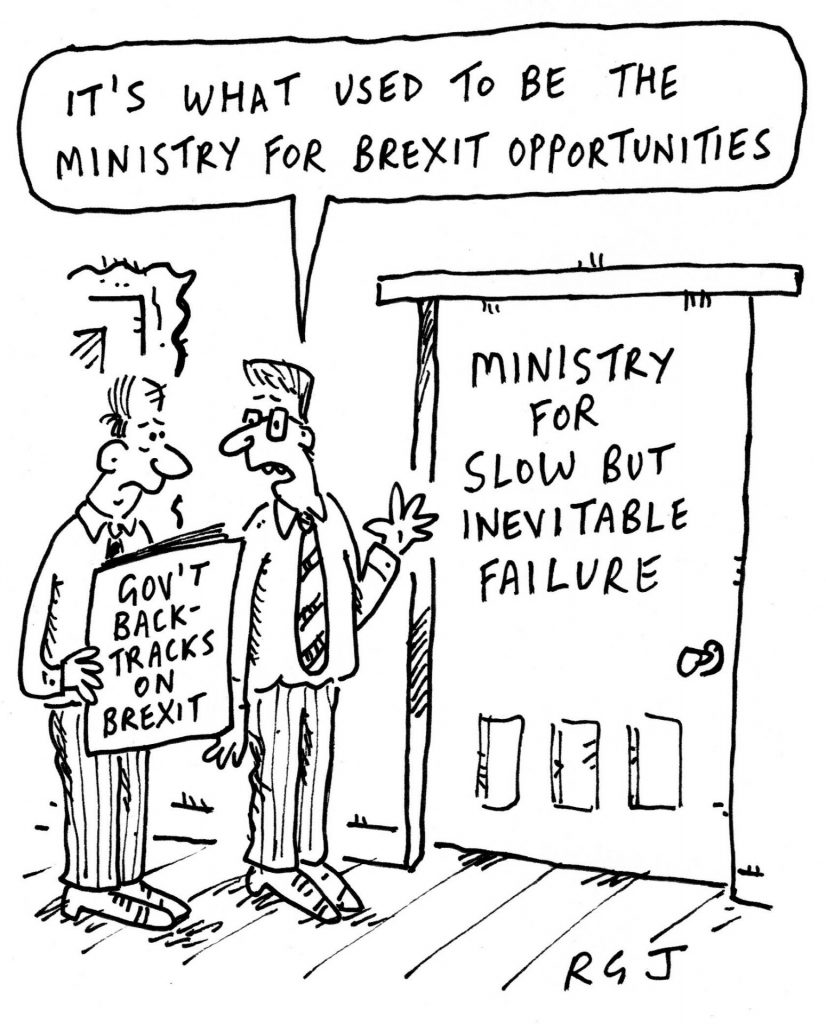 IT'S WHAT USED TO BE THE
MINISTRY FOR BREXIT OPPORTUNITIES
GOV'T
BACK-
TRACKS
ON
BREXIT
MINISTRY
FOR
SLOW BUT
INEVITABLE
FAILURE
RGJ